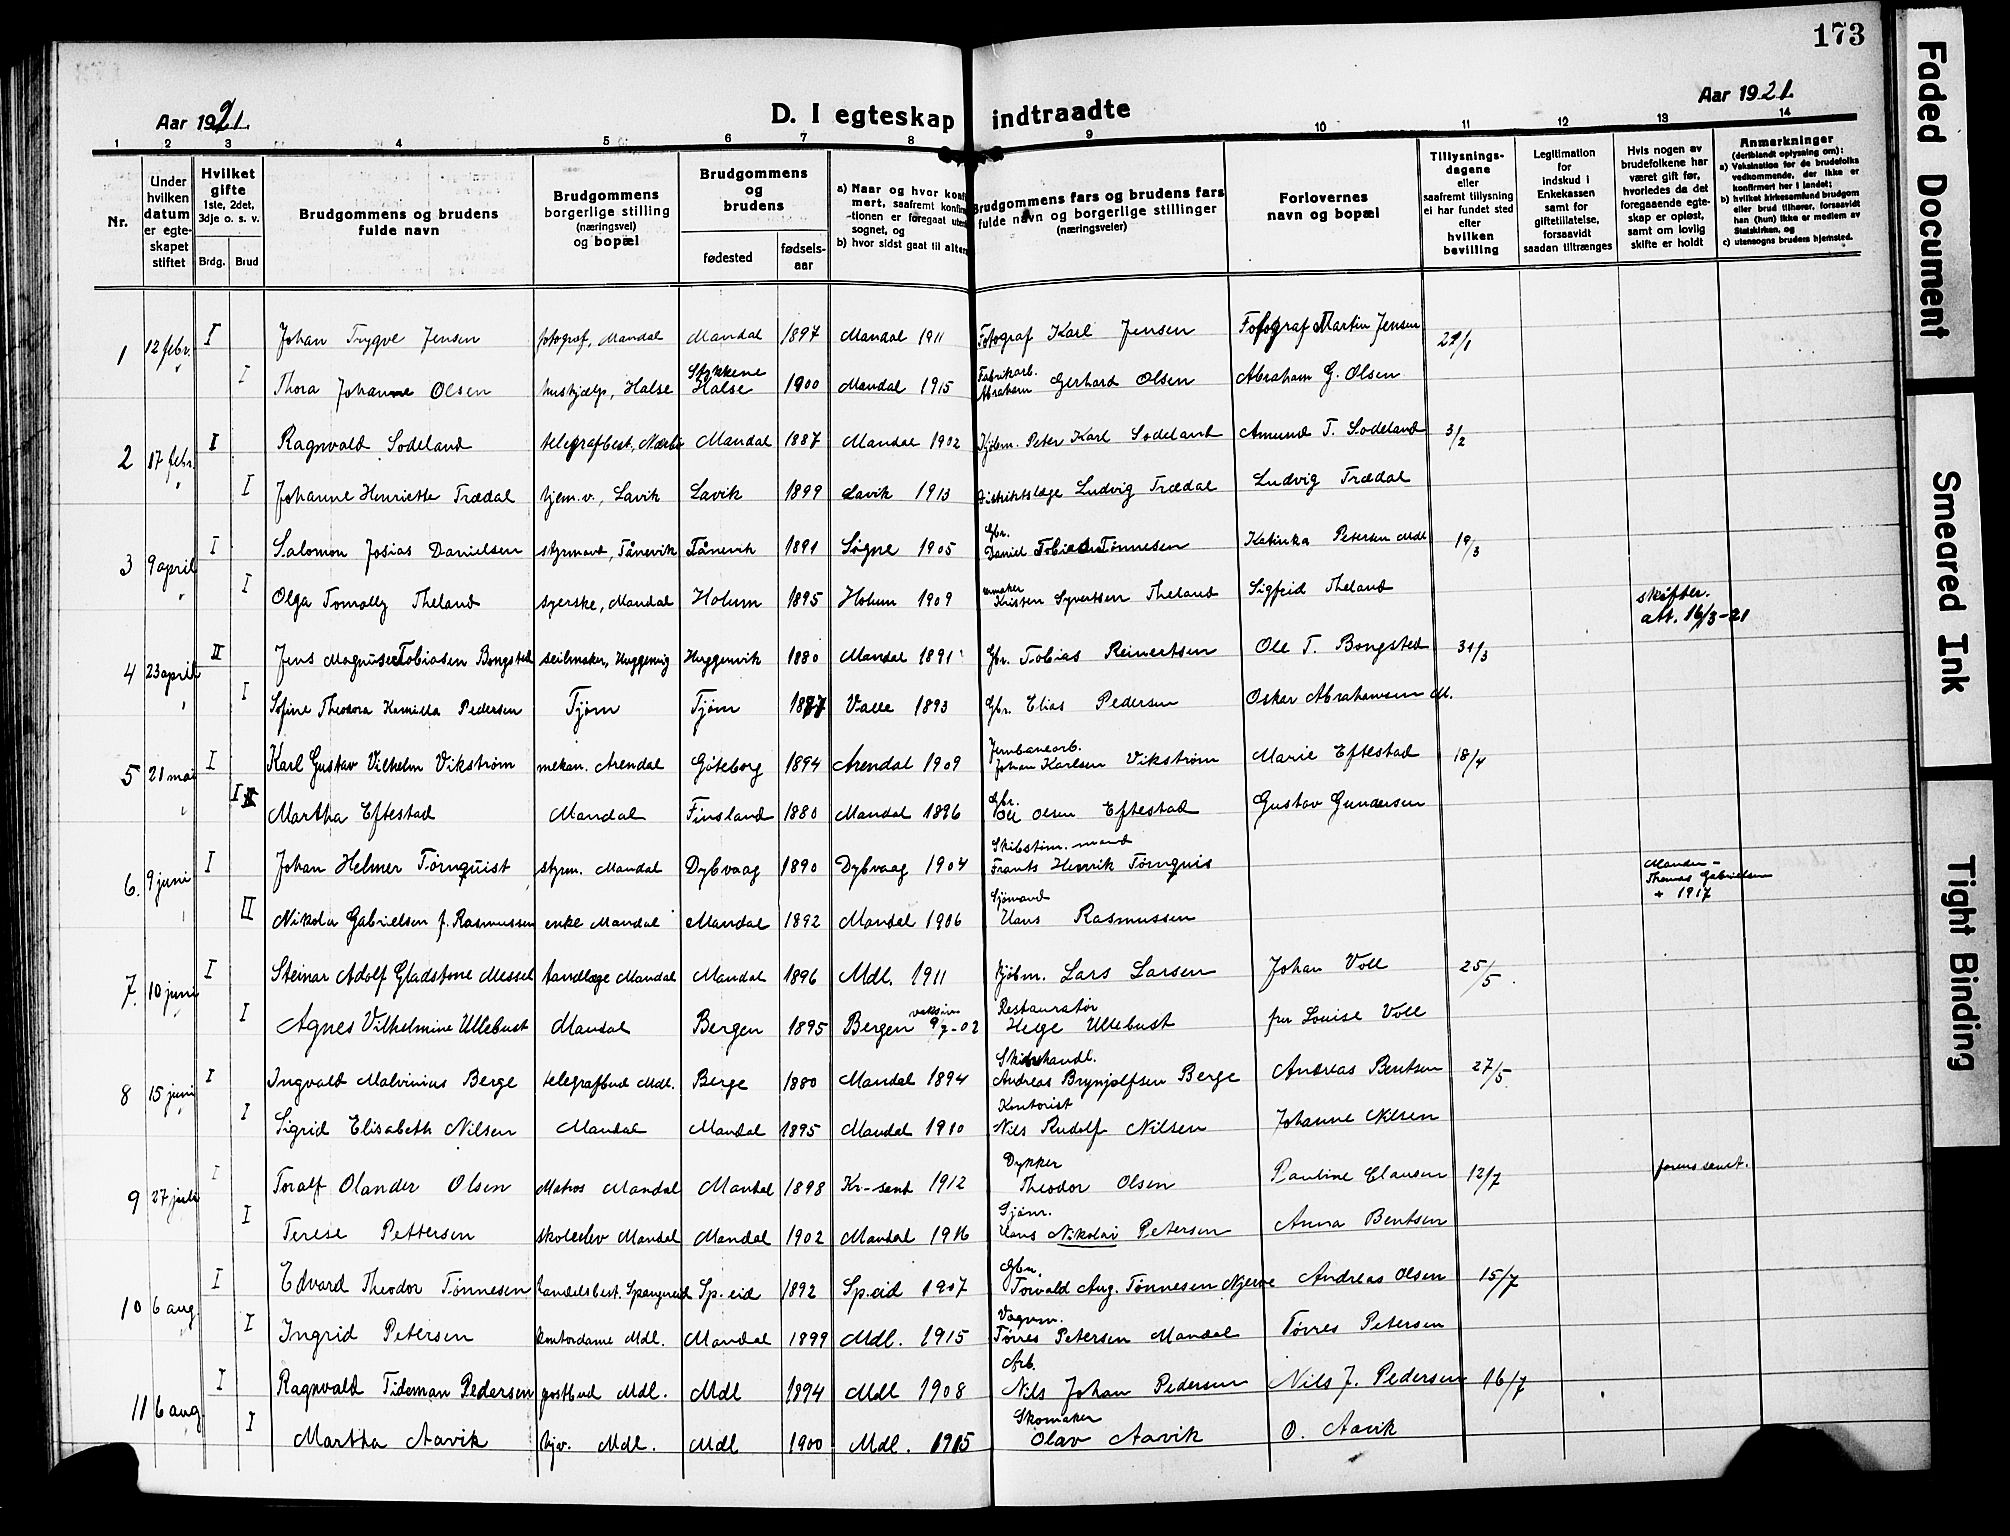 173
Aar 1921.
D. I egteskap indtraadte
Aar 1921.
1 2 3 4 5 6 7 8 9 10 11 12 13 14
Nr.
Under hvilken datum er egteskapet stiftet
Hvilket gifte 1ste, 2det, 3dje o. s. v.
Brdg. Brud
Brudgommens og brudens fulde navn
Brudgommens borgerlige stilling (næringsvei) og bopæl
Brudgommens og brudens
fødested fødsels-aar
a) Naar og hvor konfirmert, saafremt konfirmationen er foregaat utensognet, og
b) hvor sidst gaat til alters
Brudgommens fars og brudens fars fulde navn og borgerlige stillinger (næringsveier)
Forlovernes navn og bopæl
Tillysnings-dagene eller saafremt tillysning ei har fundet sted efter hvilken bevilling
Legitimation for indskud i Enkekassen samt for giftetillatelse, forsaavidt saadan tiltrænges
Hvis nogen av brudefolkene har været gift før, hvorledes da det foregaaende egteskap er opløst, samt om lovlig skifte er holdt
Anmerkninger
(deriblandt oplysning om):
a) Vaksination for de brudefolks vedkommende, der ikke er konfirmert her i landet;
b) hvilket kirkesamfund brudgom eller brud tilhører, forsaavidt han (hun) ikke er medlem av Statskirken, og
c) utensogns bruders hjemsted.
1 12 febr. I Johan Trygve Jensen fotograf, Mandal Mandal 1897 Mandal 1911 Fotograf Karl Jensen Fotograf Martin Jensen 29/1
" I Thora Johanne Olsen hushjælp, Halse Stykkene Halse 1900 Mandal 1915 Fabrikarb. Abraham Gerhard Olsen Abraham G. Olsen
2 17 febr. I Ragnvald Sodeland telegrafbest., Mandal 1887 Mandal 1902 Kjøbm. Peter Karl Sodeland Amund T. Sodeland 3/2
" I Johanne Henriette Trædal hjem.v., Lavik Lavik 1899 Lavik 1913 Distriktslæge Ludvig Trædal Ludvig Trædal
3 9 april I Salomon Josias Danielsen styrmand, Tånevik Tånevik 1891 Søgne 1905 Gbr. Daniel Tobias Tønnesen Katinka Petersen Mdl 19/3
" I Olga Tomally Theland syerske, Mandal Holum 1895 Holum 1909 Kristen Syvertsen Theland Sigfrid Theland
skifter. att. 16/3-21
4 23 april II Jens Magnus Tobiasen Bongsted seilmaker, Huggenvig Huggenvik 1880 Mandal 1891 Gbr. Tobias Reinertsen Ole T. Bongsted 31/3
" I Sofine Theodora Kamilla Pedersen Tjøm Tjøm 1877 Valle 1893 Gbr. Elias Pedersen Oskar Abrahamsen M.
5 21 mai I Karl Gustav Vilhelm Vikstrøm mekan. Arendal Göteborg 1894 Arendal 1909 Jernbanearb. Johan Karlsen Vikstrøm Marie Eftestad 18/4
" I Martha Eftestad Mandal Finsland 1880 Mandal 1896 Gbr. Ole Olsen Eftestad Gustav Gundersen
6. 9 juni I Johan Helmer Törnquist styrm. Mandal Dybvaag 1890 Dybvaag 1904 Skibstim.mand Frants Henrik Törnquis
Manden - Thomas Gabrielsen + 1917
" II Nikola Gabrielsen f. Rasmussen enke Mandal Mandal 1892 Mandal 1906 Sjømand Hans Rasmussen
7. 10 juni I Steinar Adolf Gladstone Messel tandlæge Mandal Mandal 1896 Mdl. 1911 Kjöbm. Lars Larsen Johan Voll 25/5.
" I Agnes Vilhelmine Ullebust Mandal Bergen 1895 Bergen 9/7-02 Restauratør Helge Ullebust fru Louise Voll
8 15 juni I Ingvald Malvinius Berge telegrafbud Mdl. Berge 1880 Mandal 1894 Andreas Brynjolfsen Berge Andreas Bentsen 27/5
" I Sigrid Elisabeth Nilsen Mandal Mandal 1895 Mandal 1910 Kontorist Nils Rudolf Nilsen Johanne Nilsen
9 27 juli I Toralf Olander Olsen Matros Mandal Mandal 1898 Kr-sand 1912 Dykker Theodor Olsen Pauline Clausen 12/7
I Terese Pettersen skoleelev Mandal Mandal 1902 Mandal 1916 Sjöm. Hans Nikolai Petersen Anna Bentsen
10 6 aug. I Edvard Theodor Tønnesen handelsbest. Spangereid Sp.eid 1892 Sp.eid 1907 Gbr. Torvald Aug. Tønnesen Njerve Andreas Olsen 15/7
" I Ingrid Petersen kontordame Mdl. Mandal 1899 Mdl. 1915 Vognm. Tørres Petersen Mandal Tørres Petersen
11 6 aug. I Ragnvald Tideman Pedersen postbud Mdl. Mdl 1894 Mdl 1908 Arb. Nils Johan Pedersen Nils J. Pedersen 16/7
" I Martha Aavik hjv. Mdl. Mdl 1900 Mdl. 1915 Skomaker Olav Aavik O. Aavik
Faded Document
Smeared Ink
Tight Binding